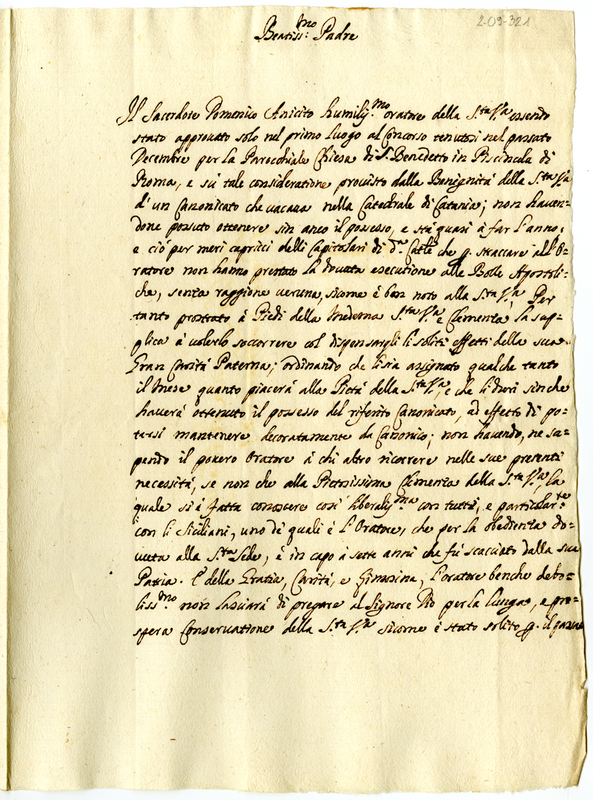 2-09-321
Beatiss:mo Padre
Il Sacerdote Domenico Anicito humilij.mo oratore della S.ta V.a essendo
stato approvato solo nel primo luogo al Concorso tenutosi nel passato
Decembre per la Parochiale Chiesa di S. Benedetto in Piscinula di
Roma, e sù tale consideratione provisto dalla Benignità della S.ta V.a
d'un Canonicato che vacava nella Catedrale di Catania; non haven-
done possuto ottenere sin anco il possesso, e stà quasi à far l'anno;
e ciò per meri capricci delli Capitolari di d.a Catle che p. straccare all'O-
ratore non hanno prestato la dovuta esecutione alle Bolle Apostoli-
che, senza raggione veruna, sicome è ben noto alla S.ta V.a Per
tanto prostrato à Piedi della medema S.ta V.a e Clemenza la sup-
plica à volerlo soccorrere col dispensargli li soliti effetti della sua
Gran Carità Paterna; ordinando che li sia assignato qualche tanto
il Mese quanto piacerà alla Pietà della S.ta V.a, e che li duri sinche
haverà ottenuto il possesso del riferito Canonicato, ad effetto di po-
tersi mantenere decoratamente da Canonico; non havendo, ne sa-
pendo il povero Oratore à chi altro ricorrere nelle sue presenti
necessità, se non che alla Pietosissima Clemenza della S.ta V.a, la
quale si è fatta conoscere così liberalij.ma con tutti, e particolar.te
con li Siciliani, uno de quali è l'Oratore, che per la obedienza do-
vuta alla S.ta Sede, è in capo à sette anni che fù scacciato dalla sua
Patria. E della Gratia, Carità, e l'oratore benche debo-
liss.mo non lasciarà di pregare al Signore Dio per la lunga, e pro-
spera Conservatione della S.ta V.a sicome è stato solito p. il passa